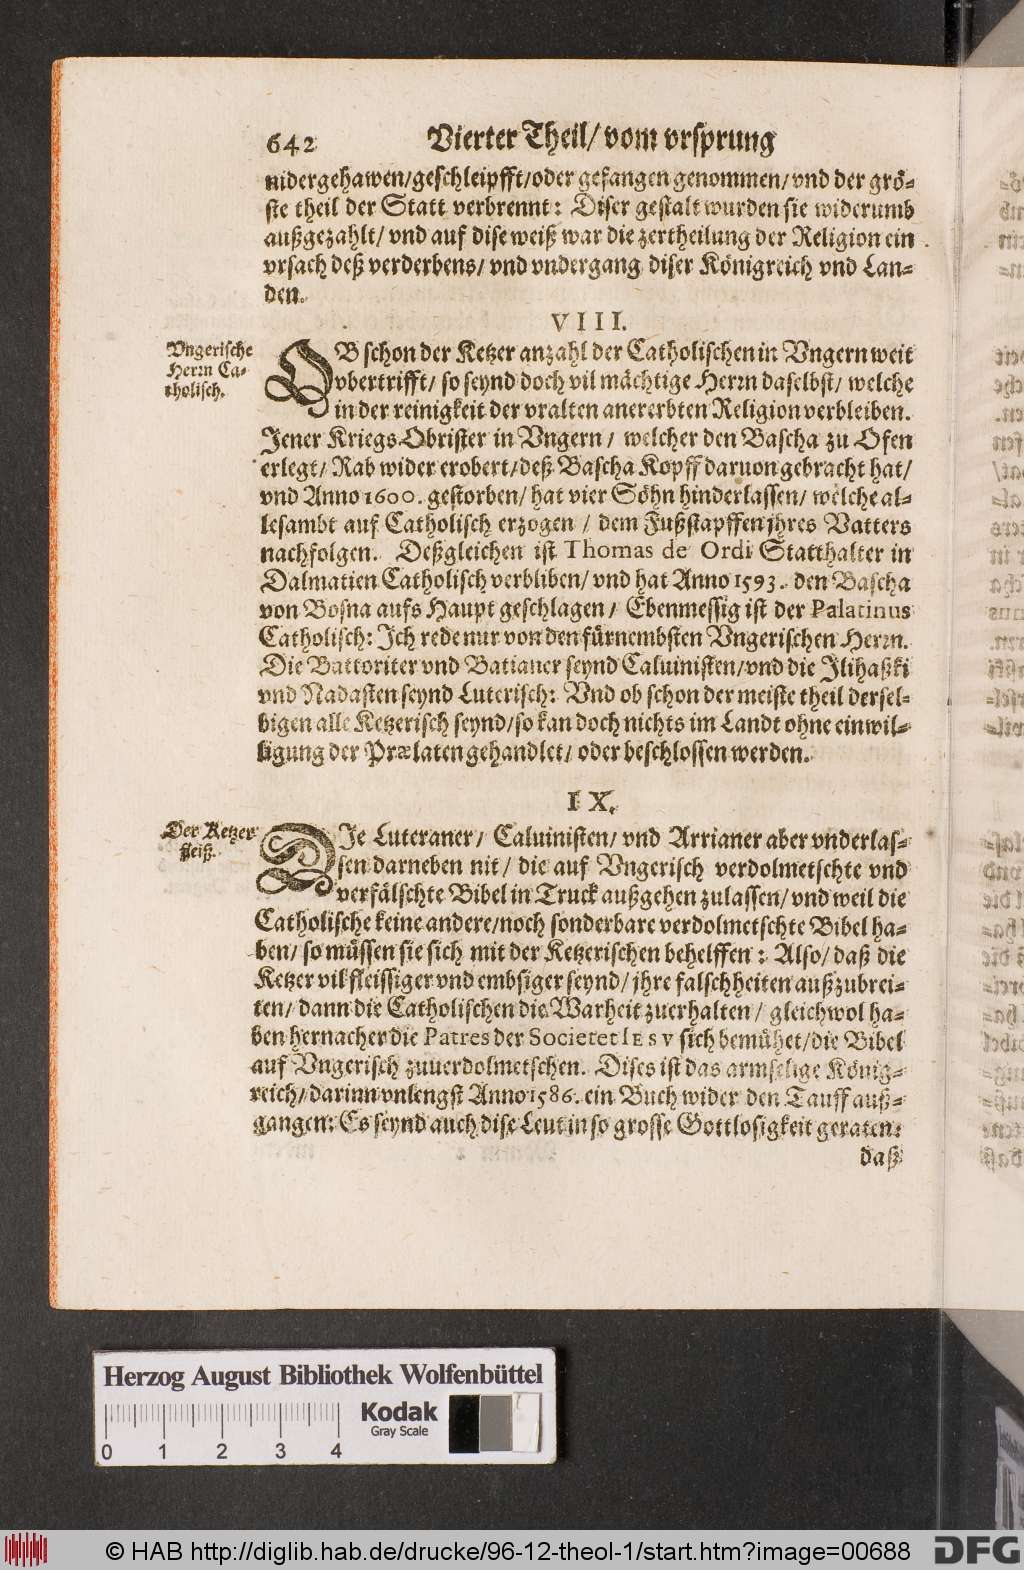 642 Vierter Theil/ vom vrsprung
nidergehawen/geschleipfft/oder gefangen genommen/ vnd der grö-
ste theil der Statt verbrennt: Diser gestalt wurden sie widerumb
außgezahlt/ vnd auf dise weiß war die zertheilung der Religion ein
vrsach deß verderbens/ vnd vndergang diser Königreich vnd Lan-
den.
VIII.
Vngerische
Herrn Ca-
tholisch.
OB schon der Ketzer anzahl der Catholischen in Vngern weit
vbertrifft/ so seynd doch vil mächtige Herrn daselbst/ welche
in der reinigkeit der vralten anererbten Religion verbleiben.
Jener Kriegs Obrister in Vngern/ welcher den Bascha zu Ofen
erlegt/ Rab wider erobert/ deß Bascha Kopff daruon gebracht hat/
vnd Anno 1600. gestorben/ hat vier Söhn hinderlassen/ welche al-
lesambt auf Catholisch erzogen/ dem Fußstapffen jhres Vatters
nachfolgen. Deßgleichen ist Thomas de Ordi Statthalter in
Dalmatien Catholisch verbliben/ vnd hat Anno 1593. den Bascha
von Bosna aufs Haupt geschlagen/ Ebenmessig ist der Palatinus
Catholisch: Ich rede nur von den fürnembsten Vngerischen Herrn.
Die Battoriter vnd Batianer seynd Caluinisten/vnd die Ilihaßki
vnd Nadasten seynd Luterisch: Vnd ob schon der meiste theil dersel-
bigen alle Ketzerisch seynd/so kan doch nichts im Landt ohne einwil-
ligung der Prælaten gehandlet/ oder beschlossen werden.
IX.
Der Ketzer
fleiß.
DIe Luteraner/ Caluinisten/ vnd Arrianer aber vnderlas-
sen darneben nit/ die auf Vngerisch verdolmetschte vnd
verfälschte Bibel in Truck außgehen zulassen/ vnd weil die
Catholische keine andere/noch sonderbare verdolmetschte Bibel ha-
ben/ so müssen sie sich mit der Ketzerischen behelffen: Also/ daß die
Ketzer vil fleissiger vnd embsiger seynd/ jhre falschheiten außzubrei-
ten/ dann die Catholischen die Warheit zuerhalten/ gleichwol ha-
ben hernacher die Patres der Societet IESV sich bemühet/die Bibel
auf Vngerisch zuuerdolmetschen. Dises ist das armselige König-
reich/ darinn vnlengst Anno 1586. ein Buch wider den Tauff auß-
gangen: Es seynd auch dise Leut in so grosse Gottlosigkeit geraten:
daß
Herzog August Bibliothek Wolfenbüttel
0 1 2 3 4
Kodak
Gray Scale
© HAB http://diglib.hab.de/drucke/96-12-theol-1/start.htm?image=00688
DFG